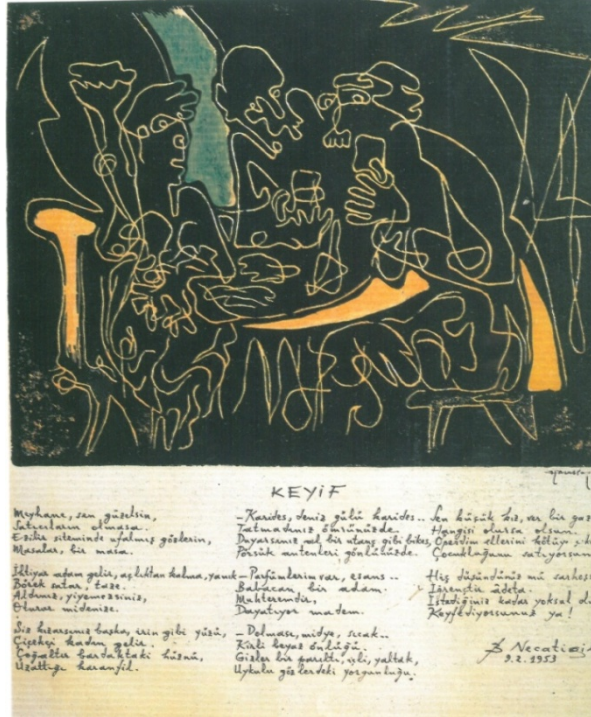 KEYİF
Meyhane, sen güzelsin,
Satıcıların olmasa.
Ezilir siteminde ufalmış gözlerin,
Masalar, bir masa.
İhtiyar adam gelir, açlıktan kalma, yanık
Börek satar, taze.
Aldınız, yiyemezsiniz,
Oturur midenize.
Siz kızarsınız başka, irin gibi yüzü,
Çiçekçi kadın gelir.
Çoğaltır bardaktaki hüznü,
Uzattığı karanfil.
- Karides, deniz gülü karides..
Tatmadınız ömrünüzde.
Duyarsınız mal bir utanç gibi biter,
Pörsük antenleri gönlünüzde.
- Parfümlerim var, esans..
Babacan bir adam.
Muhteremdir,
Dayatıyor madem.
- Dolması, midye, sıcak..
Kirli beyaz önlüğü.
Gizler bir parıltı, işli, yaltak,
Uykulu gözlerdeki yorgunluğu.
Sen küçük kız, ver bir gaz
Hangisi olursa olsun.
Öpendim ellerini kötüy
Çocukluğunu satıyorsun
Hiç düşündünüz mü sarhoş
İğrençtir âdeta.
İstediğiniz kadar yoksul
Keyfediyorsunuz ya!
B Necatigi
9.2.1953